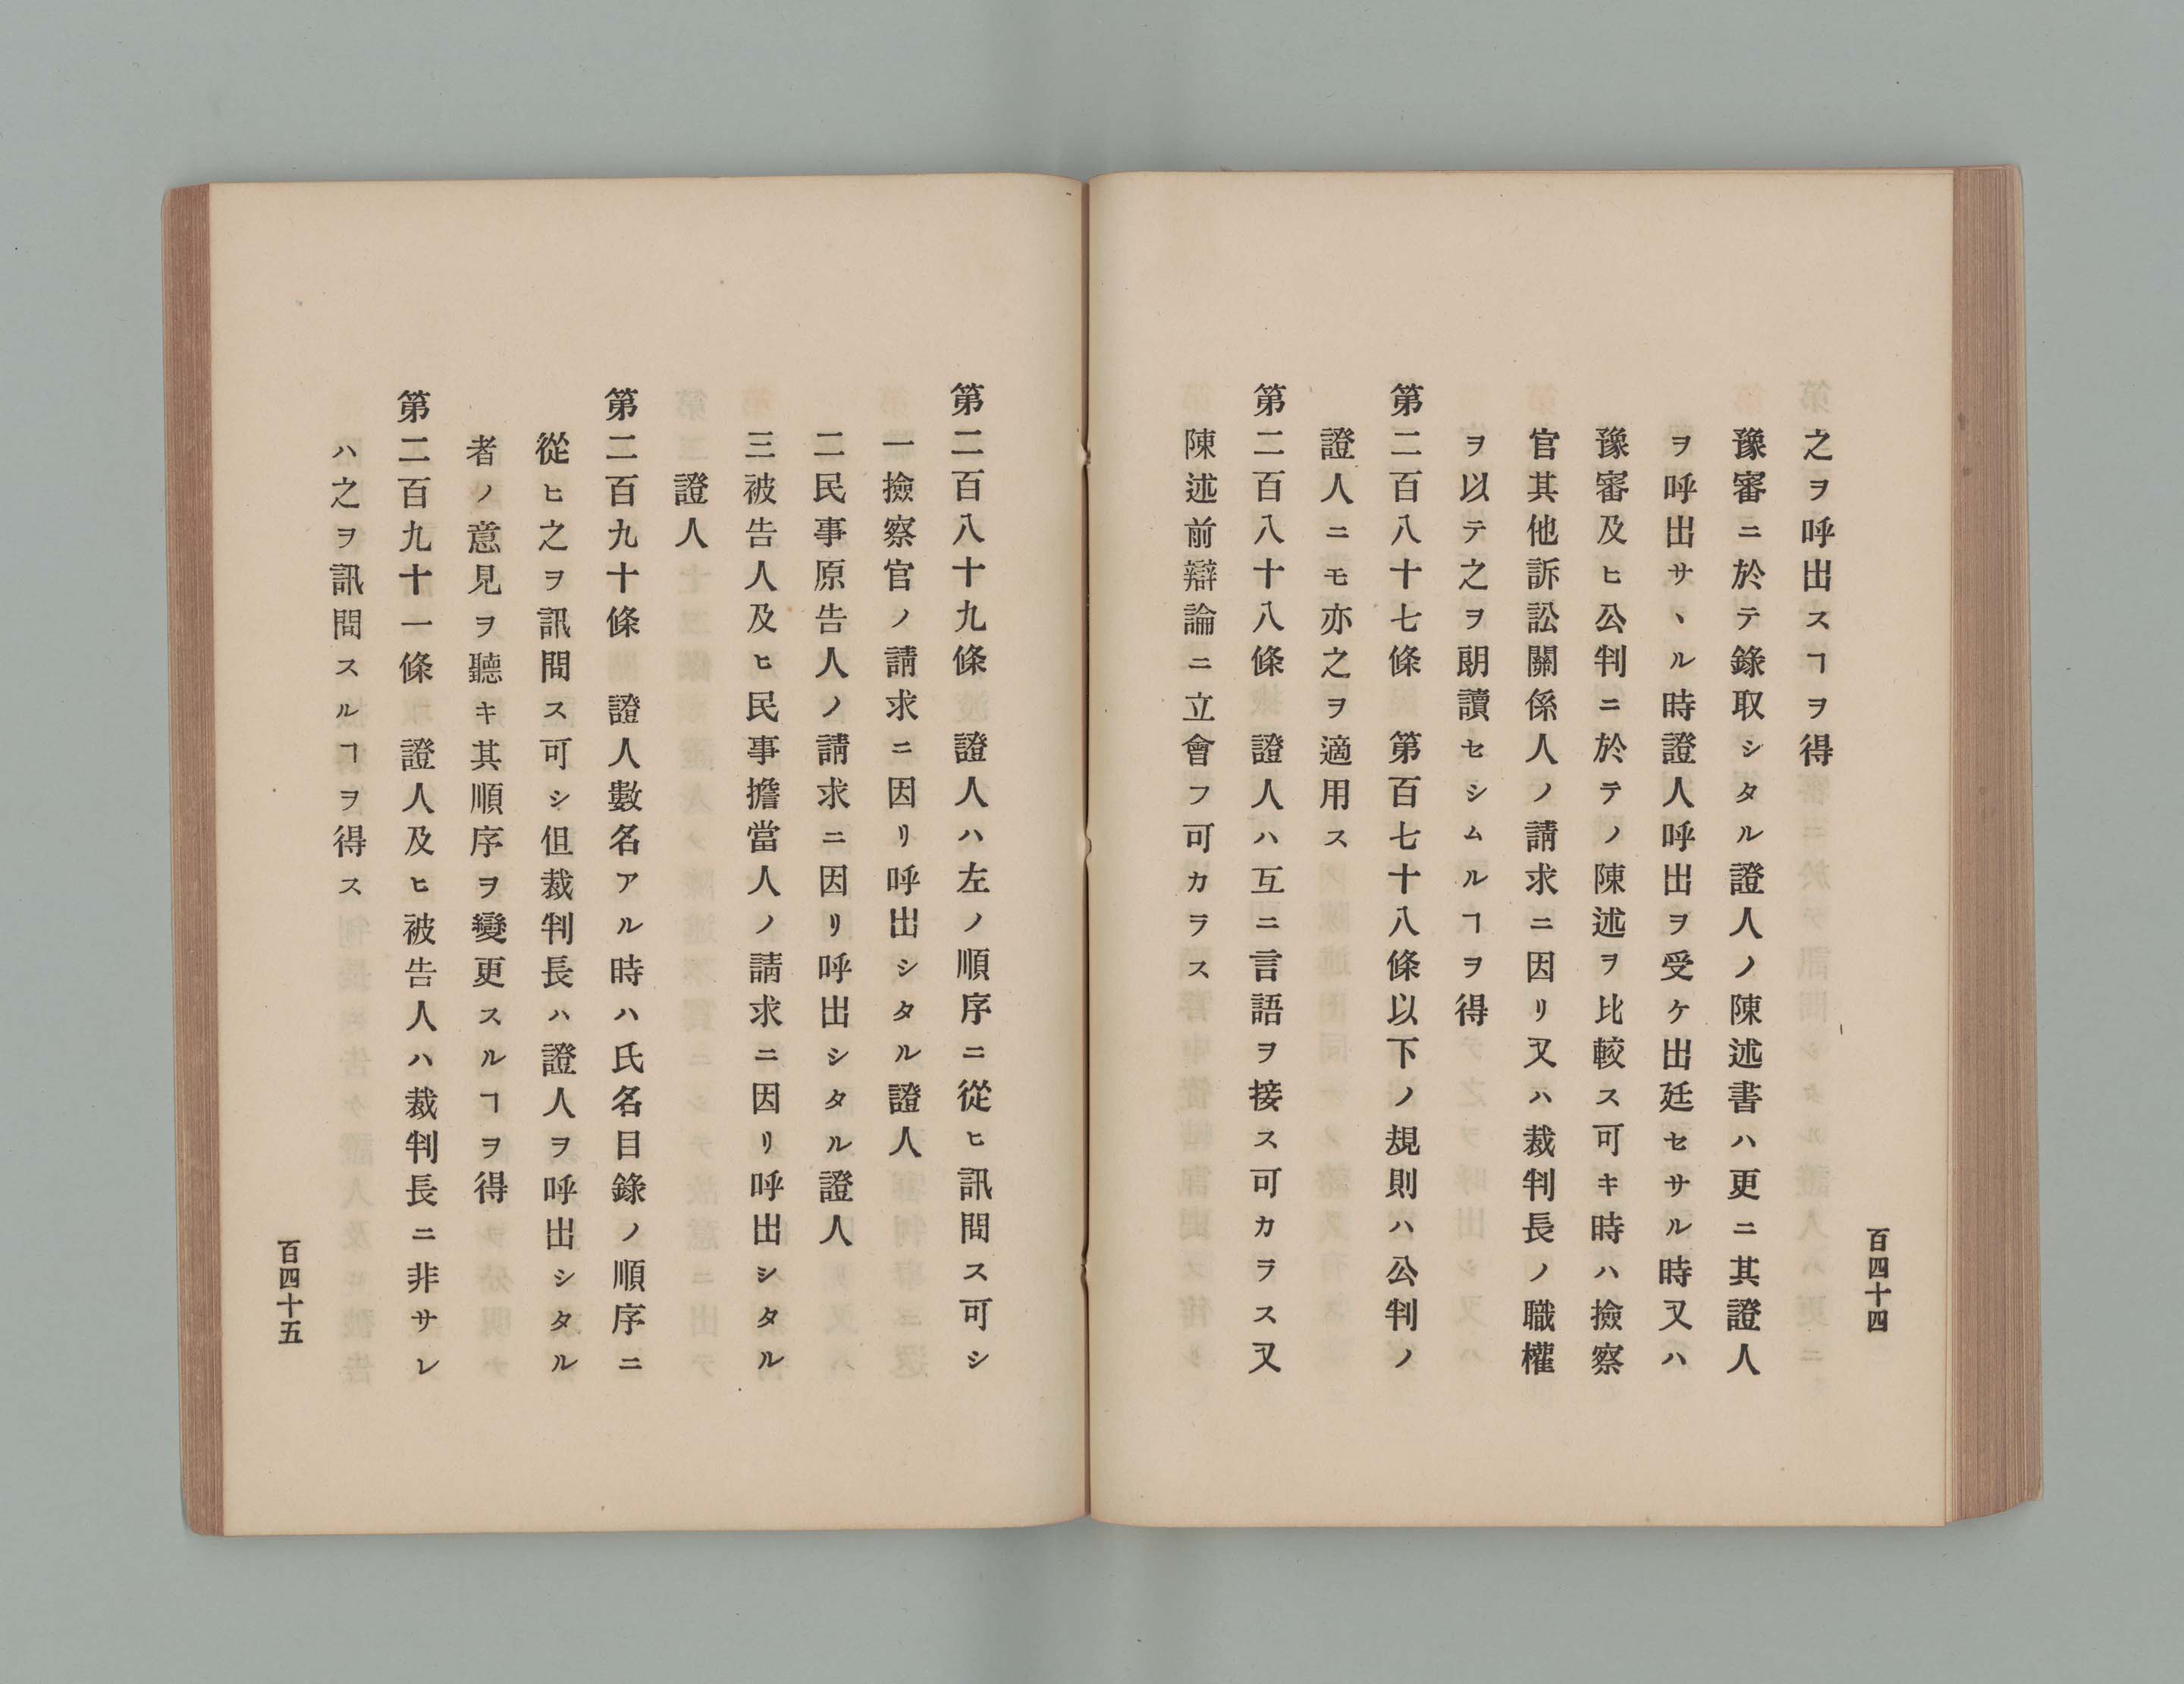 之ヲ呼出スヿヲ得
豫審ニ於テ錄取シタル證人ノ陳述書ハ更ニ其證人
ヲ呼出サヽル時證人呼出ヲ受ケ出廷セサル時又ハ
豫審及ヒ公判ニ於テノ陳述ヲ比較ス可キ時ハ撿察
官其他訴訟關係人ノ請求ニ因リ又ハ裁判長ノ職權
ヲ以テ之ヲ朗讀セシムルヿヲ得
第二百八十七條 第百七十八條以下ノ規則ハ公判ノ
證人ニモ亦之ヲ適用ス
第二百八十八條 證人ハ互ニ言語ヲ接ス可カラス又
陳述前辯論ニ立會フ可カラス
百四十四
第二百八十九條 證人ハ左ノ順序ニ從ヒ訊問ス可シ
一撿察官ノ請求ニ因リ呼出シタル證人
二民事原告人ノ請求ニ因リ呼出シタル證人
三被告人及ヒ民事擔當人ノ請求ニ因リ呼出シタル
證人
第二百九十條 證人數名アル時ハ氏名目錄ノ順序ニ
從ヒ之ヲ訊問ス可シ但裁判長ハ證人ヲ呼出シタル
者ノ意見ヲ聽キ其順序ヲ變更スルヿヲ得
第二百九十一條 證人及ヒ被告人ハ裁判長ニ非サレ
ハ之ヲ訊問スルヿヲ得ス
百四十五